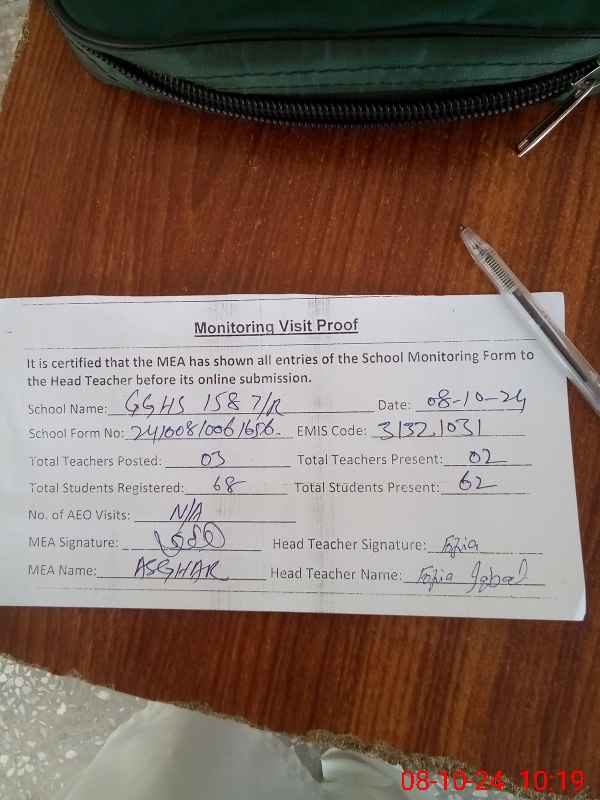 Monitoring Visit Proof
It is certified that the MEA has shown all entries of the School Monitoring Form to
the Head Teacher before its online submission.
School Name: GGHS 158 7/R Date: 08-10-24
School Form No: EMIS Code: 31321031
Total Teachers Posted: 03 Total Teachers Present: 02
Total Students Registered: 68 Total Students Present: 62
No. of AEO Visits: N/A
MEA Signature: Head Teacher Signature: Fozia
MEA Name: ASGHAR Head Teacher Name: Fozia Iqbal
08-10-24 10:19